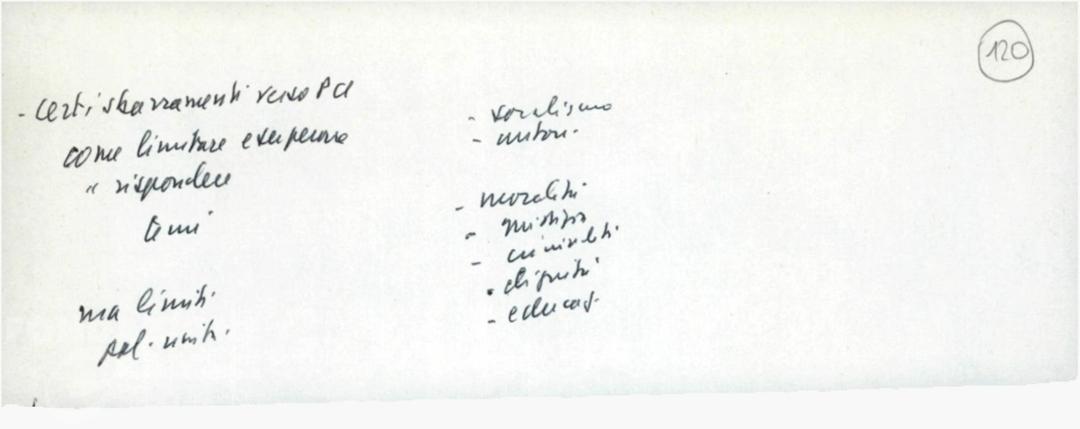 120
- certi sbarramenti verso PCI
come limitare e superare
" rispondere
temi
ma limiti.
pol. unit.
- socialismo
- auton.
- moralità
- giustizia
- criminalità
- dignità
- educaz.